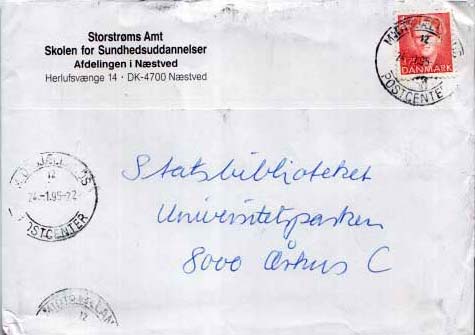 Storstrøms Amt
Skolen for Sundhedsuddannelser
Afdelingen i Næstved
Herlufsvænge 14 · DK-4700 Næstved
12
DANMARK
POSTCENTER
12
24.-1.95-22
POSTCENTER
Statsbiblioteket
Universitetsparken
8000 Århus C
12